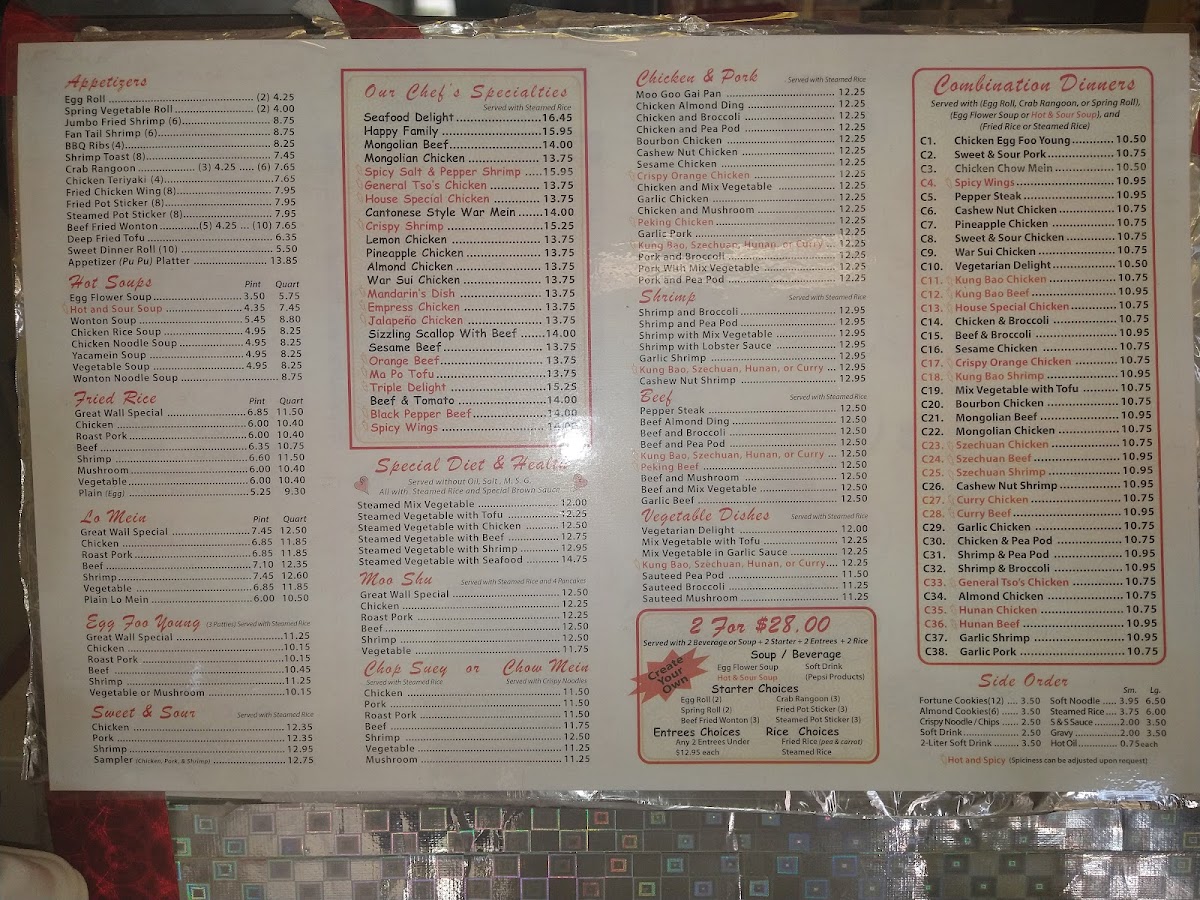 Appetizers
Egg Roll (2) 4.25
Spring Vegetable Roll (2) 4.00
Jumbo Fried Shrimp (6) 8.75
Fan Tail Shrimp (6) 8.75
BBQ Ribs (4) 8.25
Shrimp Toast (8) 7.45
Crab Rangoon (3) 4.25 ..... (6) 7.65
Chicken Teriyaki (4) 7.65
Fried Chicken Wing (8) 7.95
Fried Pot Sticker (8) 7.95
Steamed Pot Sticker (8) 7.95
Beef Fried Wonton (5) 4.25 ... (10) 7.65
Deep Fried Tofu 6.35
Sweet Dinner Roll (10) 5.50
Appetizer (Pu Pu) Platter 13.85
Hot Soups Pint Quart
Egg Flower Soup 3.50 5.75
Hot and Sour Soup 4.35 7.45
Wonton Soup 5.45 8.80
Chicken Rice Soup 4.95 8.25
Chicken Noodle Soup 4.95 8.25
Yacamein Soup 4.95 8.25
Vegetable Soup 4.95 8.25
Wonton Noodle Soup 8.75
Fried Rice Pint Quart
Great Wall Special 6.85 11.50
Chicken 6.00 10.40
Roast Pork 6.00 10.40
Beef 6.35 10.75
Shrimp 6.60 11.50
Mushroom 6.00 10.40
Vegetable 6.00 10.40
Plain (Egg) 5.25 9.30
Lo Mein Pint Quart
Great Wall Special 7.45 12.50
Chicken 6.85 11.85
Roast Pork 6.85 11.85
Beef 7.10 12.35
Shrimp 7.45 12.60
Vegetable 6.85 11.85
Plain Lo Mein 6.00 10.50
Egg Foo Young (3 Patties) Served with Steamed Rice
Great Wall Special 11.25
Chicken 10.15
Roast Pork 10.15
Beef 10.45
Shrimp 11.25
Vegetable or Mushroom 10.15
Sweet & Sour Served with Steamed Rice
Chicken 12.35
Pork 12.35
Shrimp 12.95
Sampler (Chicken, Pork, & Shrimp) 12.75
Our Chef's Specialties
Served with Steamed Rice
Seafood Delight 16.45
Happy Family 15.95
Mongolian Beef 14.00
Mongolian Chicken 13.75
Spicy Salt & Pepper Shrimp 15.95
General Tso's Chicken 13.75
House Special Chicken 13.75
Cantonese Style War Mein 14.00
Crispy Shrimp 15.25
Lemon Chicken 13.75
Pineapple Chicken 13.75
Almond Chicken 13.75
War Sui Chicken 13.75
Mandarin's Dish 13.75
Empress Chicken 13.75
Jalapeño Chicken 13.75
Sizzling Scallop With Beef 14.00
Sesame Beef 13.75
Orange Beef 13.75
Ma Po Tofu 13.75
Triple Delight 15.25
Beef & Tomato 14.00
Black Pepper Beef 14.00
Spicy Wings 14.00
Special Diet & Health
Served without Oil, Salt, M. S. G.
All with: Steamed Rice and Special Brown Sauce
Steamed Mix Vegetable 12.00
Steamed Vegetable with Tofu 12.25
Steamed Vegetable with Chicken 12.50
Steamed Vegetable with Beef 12.75
Steamed Vegetable with Shrimp 12.95
Steamed Vegetable with Seafood 14.75
Moo Shu Served with Steamed Rice and 4 Pancakes
Great Wall Special 12.50
Chicken 12.25
Roast Pork 12.25
Beef 12.50
Shrimp 12.50
Vegetable 11.75
Chop Suey or Chow Mein
Served with Steamed Rice Served with Crispy Noodles
Chicken 11.50
Pork 11.50
Roast Pork 11.50
Beef 11.75
Shrimp 12.50
Vegetable 11.25
Mushroom 11.25
Chicken & Pork Served with Steamed Rice
Moo Goo Gai Pan 12.25
Chicken Almond Ding 12.25
Chicken and Broccoli 12.25
Chicken and Pea Pod 12.25
Bourbon Chicken 12.25
Cashew Nut Chicken 12.25
Sesame Chicken 12.25
Crispy Orange Chicken 12.25
Chicken and Mix Vegetable 12.25
Garlic Chicken 12.25
Chicken and Mushroom 12.25
Peking Chicken 12.25
Garlic Pork 12.25
Kung Bao, Szechuan, Hunan, or Curry 12.25
Pork and Broccoli 12.25
Pork With Mix Vegetable 12.25
Pork and Pea Pod 12.25
Shrimp Served with Steamed Rice
Shrimp and Broccoli 12.95
Shrimp and Pea Pod 12.95
Shrimp with Mix Vegetable 12.95
Shrimp with Lobster Sauce 12.95
Garlic Shrimp 12.95
Kung Bao, Szechuan, Hunan, or Curry 12.95
Cashew Nut Shrimp 12.95
Beef Served with Steamed Rice
Pepper Steak 12.50
Beef Almond Ding 12.50
Beef and Broccoli 12.50
Beef and Pea Pod 12.50
Kung Bao, Szechuan, Hunan, or Curry 12.50
Peking Beef 12.50
Beef and Mushroom 12.50
Beef and Mix Vegetable 12.50
Garlic Beef 12.50
Vegetable Dishes Served with Steamed Rice
Vegetarian Delight 12.00
Mix Vegetable with Tofu 12.25
Mix Vegetable in Garlic Sauce 12.25
Kung Bao, Szechuan, Hunan, or Curry 12.25
Sauteed Pea Pod 11.50
Sauteed Broccoli 11.25
Sauteed Mushroom 11.25
2 For $28.00
Served with 2 Beverage or Soup + 2 Starter + 2 Entrees + 2 Rice
Create Your Own
Soup / Beverage
Egg Flower Soup Soft Drink
Hot & Sour Soup (Pepsi Products)
Starter Choices
Egg Roll (2) Crab Rangoon (3)
Spring Roll (2) Fried Pot Sticker (3)
Beef Fried Wonton (3) Steamed Pot Sticker (3)
Entrees Choices Rice Choices
Any 2 Entrees Under Fried Rice (pea & carrot)
$12.95 each Steamed Rice
Combination Dinners
Served with (Egg Roll, Crab Rangoon, or Spring Roll),
(Egg Flower Soup or Hot & Sour Soup), and
(Fried Rice or Steamed Rice)
C1. Chicken Egg Foo Young 10.50
C2. Sweet & Sour Pork 10.75
C3. Chicken Chow Mein 10.50
C4. Spicy Wings 10.95
C5. Pepper Steak 10.95
C6. Cashew Nut Chicken 10.75
C7. Pineapple Chicken 10.75
C8. Sweet & Sour Chicken 10.75
C9. War Sui Chicken 10.75
C10. Vegetarian Delight 10.50
C11. Kung Bao Chicken 10.75
C12. Kung Bao Beef 10.95
C13. House Special Chicken 10.75
C14. Chicken & Broccoli 10.75
C15. Beef & Broccoli 10.95
C16. Sesame Chicken 10.75
C17. Crispy Orange Chicken 10.75
C18. Kung Bao Shrimp 10.95
C19. Mix Vegetable with Tofu 10.75
C20. Bourbon Chicken 10.75
C21. Mongolian Beef 10.95
C22. Mongolian Chicken 10.75
C23. Szechuan Chicken 10.75
C24. Szechuan Beef 10.95
C25. Szechuan Shrimp 10.95
C26. Cashew Nut Shrimp 10.95
C27. Curry Chicken 10.75
C28. Curry Beef 10.95
C29. Garlic Chicken 10.75
C30. Chicken & Pea Pod 10.75
C31. Shrimp & Pea Pod 10.95
C32. Shrimp & Broccoli 10.95
C33. General Tso's Chicken 10.75
C34. Almond Chicken 10.75
C35. Hunan Chicken 10.75
C36. Hunan Beef 10.95
C37. Garlic Shrimp 10.95
C38. Garlic Pork 10.75
Side Order
Sm. Lg.
Fortune Cookies(12) 3.50 Soft Noodle 3.95 6.50
Almond Cookies(6) 3.50 Steamed Rice 3.75 6.00
Crispy Noodle / Chips 2.50 S & S Sauce 2.00 3.50
Soft Drink 2.50 Gravy 2.00 3.50
2-Liter Soft Drink 3.50 Hot Oil 0.75 each
Hot and Spicy (Spiciness can be adjusted upon request)